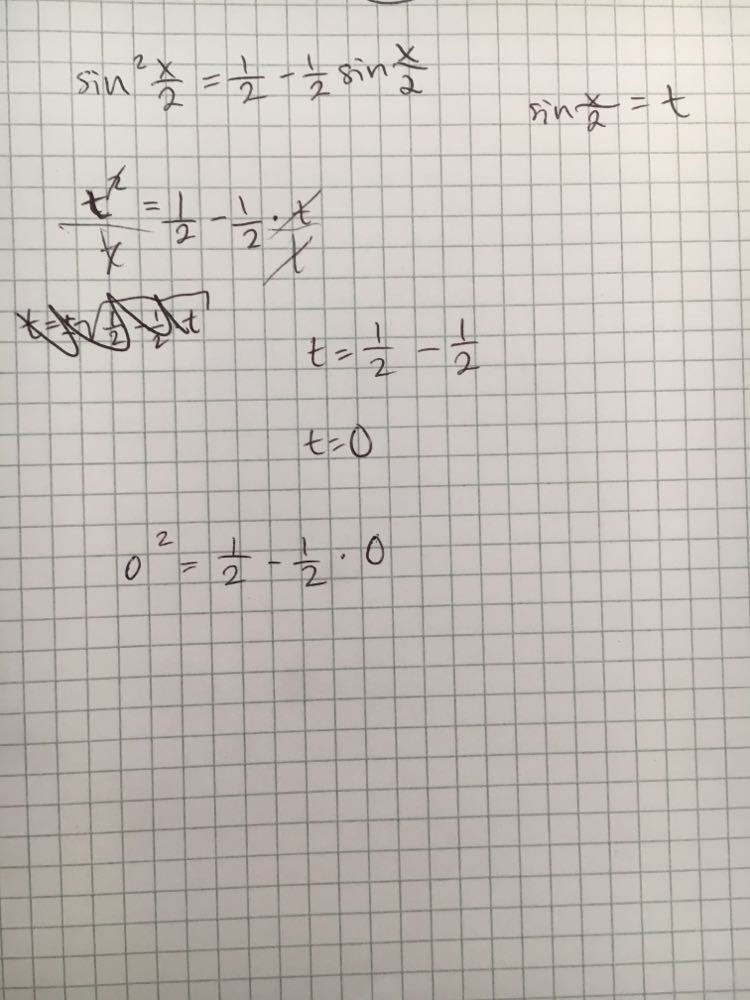 sin² x/2 = 1/2 - 1/2 sin x/2
sin x/2 = t
t²/t = 1/2 - 1/2 · t/t
t = ±√(1/2 - 1/2 t)
t = 1/2 - 1/2
t = 0
0² = 1/2 - 1/2 · 0